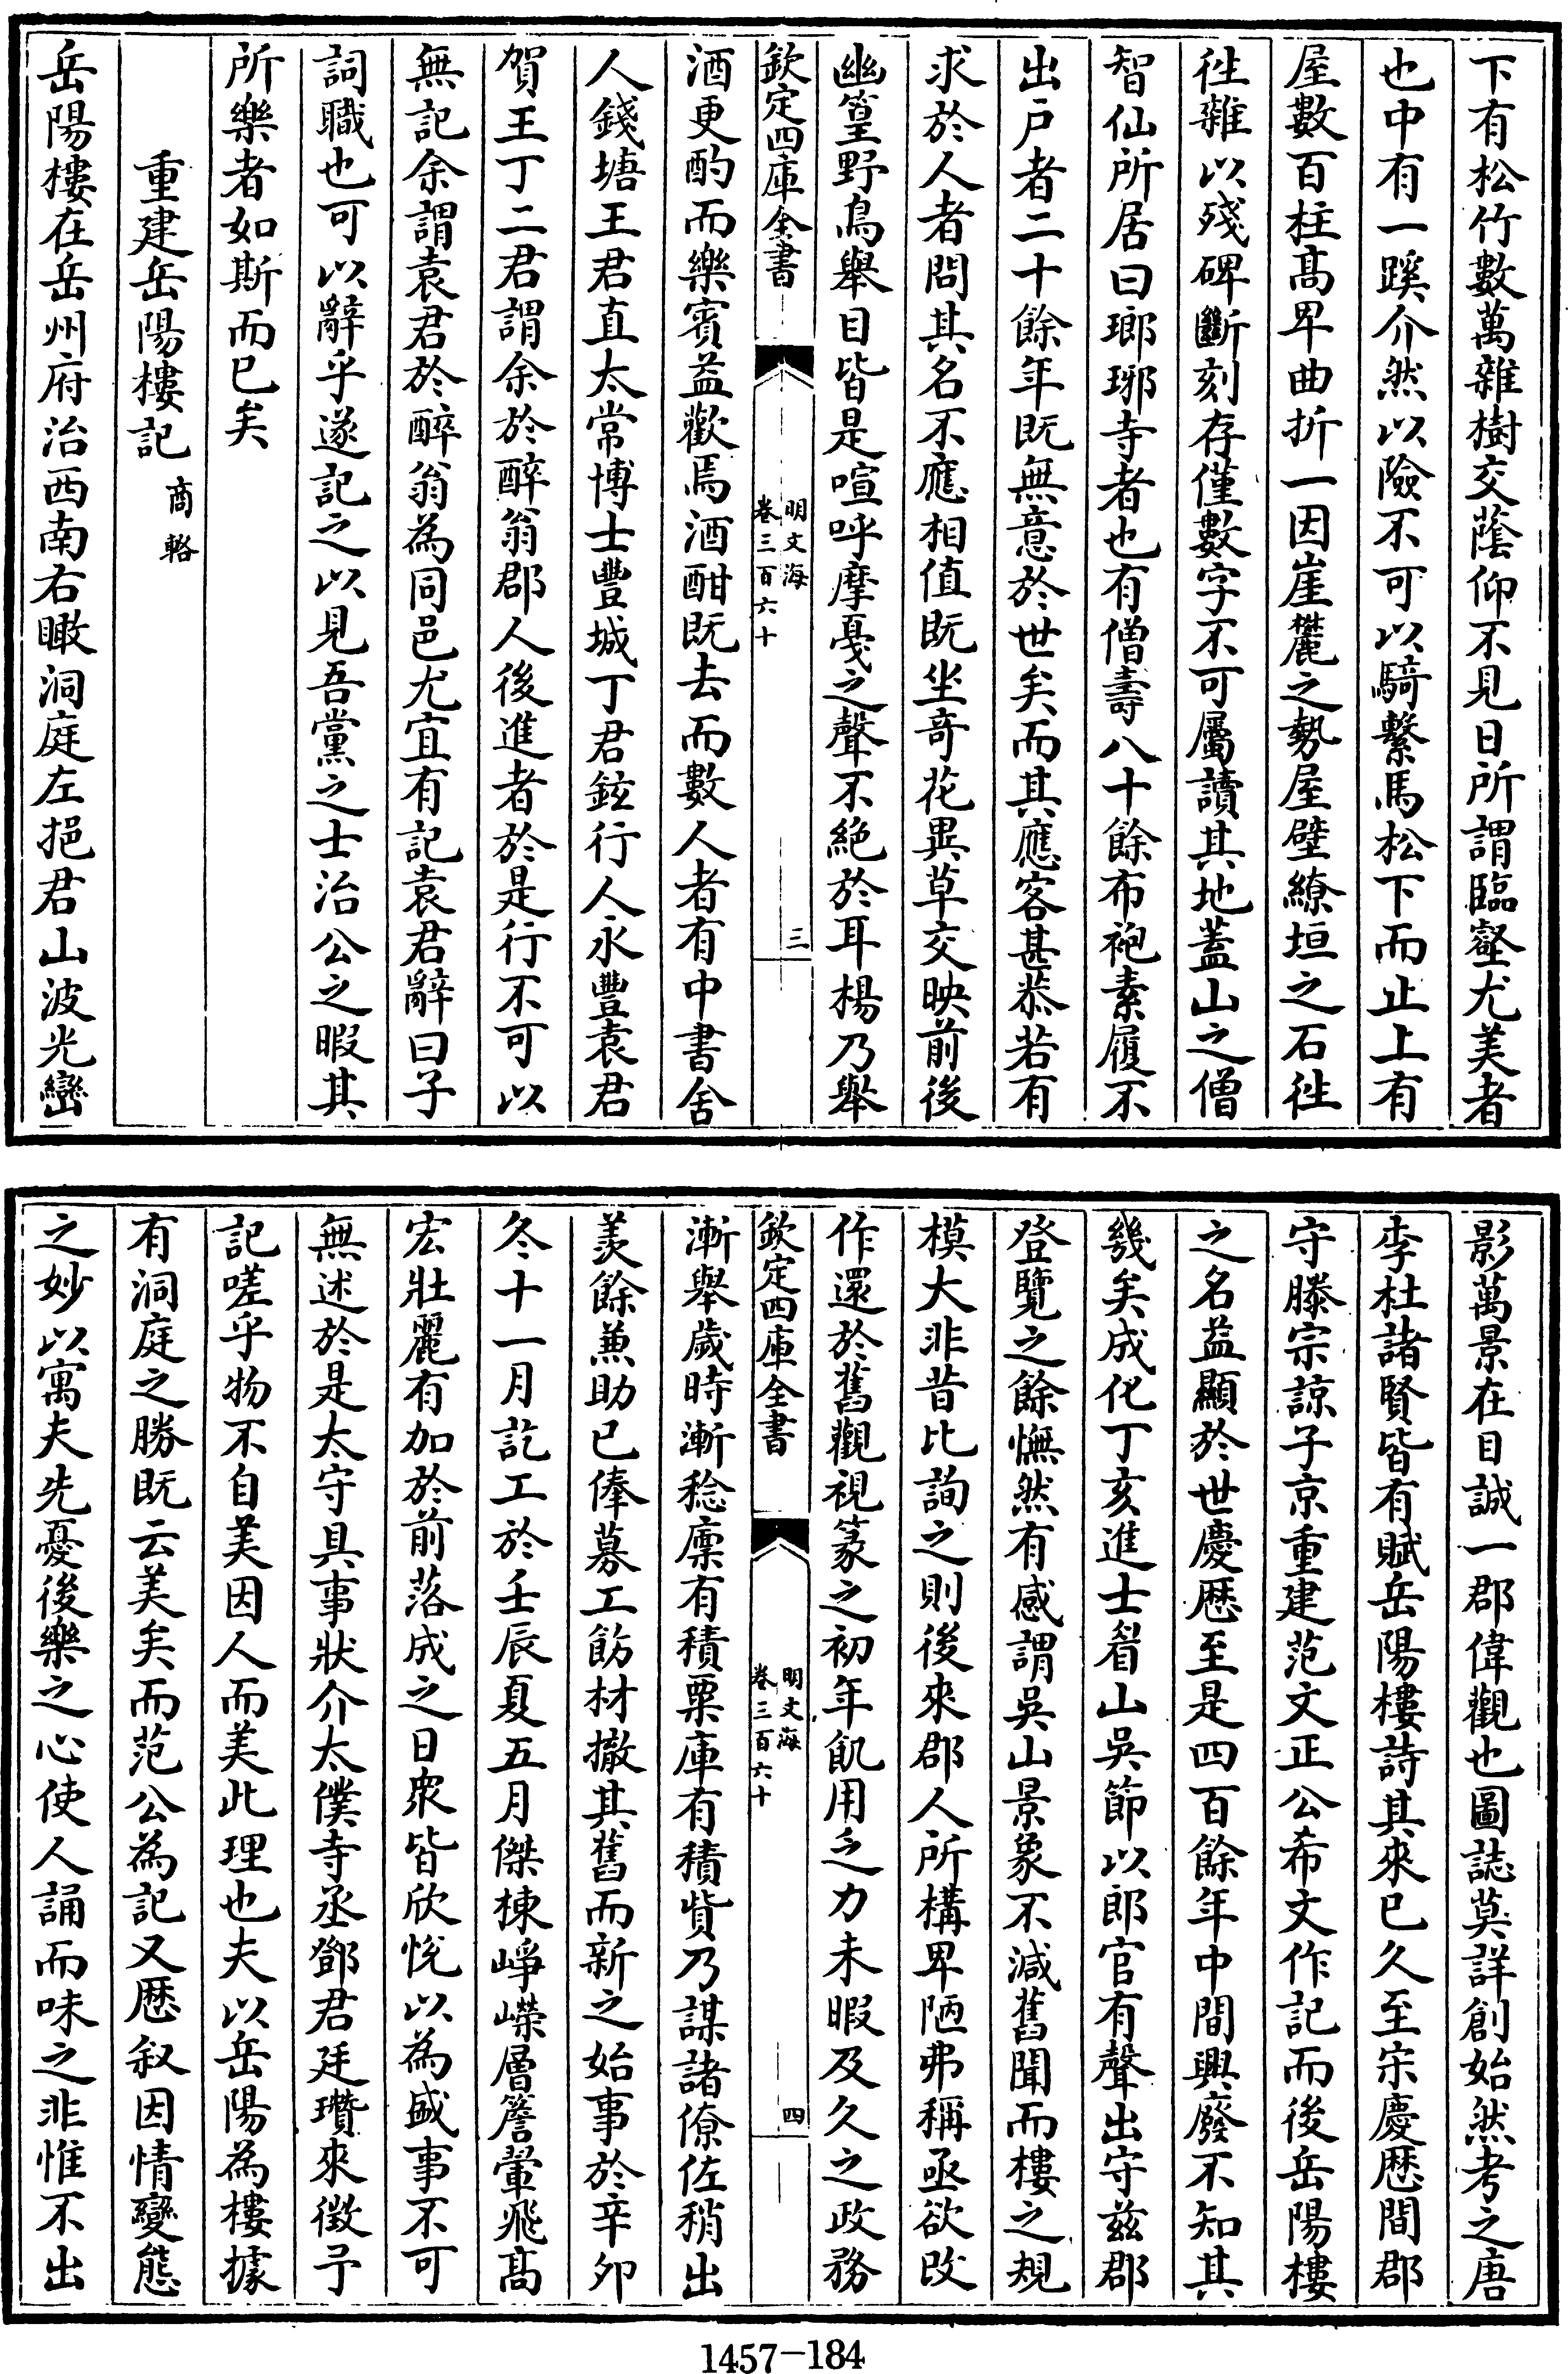 下有松竹數萬雜樹交蔭仰不見日所謂臨壑尤美者
也中有一蹊介然以險不可以騎繫馬松下而止上有
屋數百柱髙卑曲折一因崖麓之勢屋壁繚垣之石徃
徃雜以殘碑斷刻存僅數字不可屬讀其地蓋山之僧
智仙所居曰瑯琊寺者也有僧壽八十餘布袍素履不
出户者二十餘年既無意於世矣而其應客甚恭若有
求於人者問其名不應相值既坐奇花異草交映前後
幽篁野鳥舉目皆是喧呼摩戞之聲不絶於耳楊乃舉
欽定四庫全書
明文海
卷三百六十
三
酒更酌而樂賓益歡焉酒酣既去而數人者有中書舍
人錢塘王君直太常博士豐城丁君鉉行人永豐袁君
賀王丁二君謂余於醉翁郡人後進者於是行不可以
無記余謂袁君於醉翁為同邑尤宜有記袁君辭曰子
詞職也可以辭乎遂記之以見吾黨之士治公之暇其
所樂者如斯而已矣
重建岳陽樓記 商輅
岳陽樓在岳州府治西南右瞰洞庭左挹君山波光巒
影萬景在目誠一郡偉觀也圖誌莫詳創始然考之唐
李杜諸賢皆有賦岳陽樓詩其來已久至宋慶厯間郡
守滕宗諒子京重建范文正公希文作記而後岳陽樓
之名益顯於世慶厯至是四百餘年中間興廢不知其
幾矣成化丁亥進士眉山吳節以郎官有聲出守兹郡
登覽之餘憮然有感謂吳山景象不減舊聞而樓之規
模大非昔比詢之則後來郡人所構卑陋弗稱亟欲改
作還於舊觀視篆之初年飢用乏力未暇及久之政務
欽定四庫全書
明文海
卷三百六十
四
漸舉歲時漸稔廩有積粟庫有積貲乃謀諸僚佐稍出
羨餘兼助已俸募工飭材撤其舊而新之始事於辛夘
冬十一月訖工於壬辰夏五月傑棟崢嶸層簷翬飛髙
宏壯麗有加於前落成之日衆皆欣悅以為盛事不可
無述於是太守具事狀介太僕寺丞鄧君廷瓚來徴予
記嗟乎物不自美因人而美此理也夫以岳陽為樓據
有洞庭之勝既云美矣而范公為記又厯叙因情變態
之妙以寓夫先憂後樂之心使人誦而味之非惟不出
1457-184